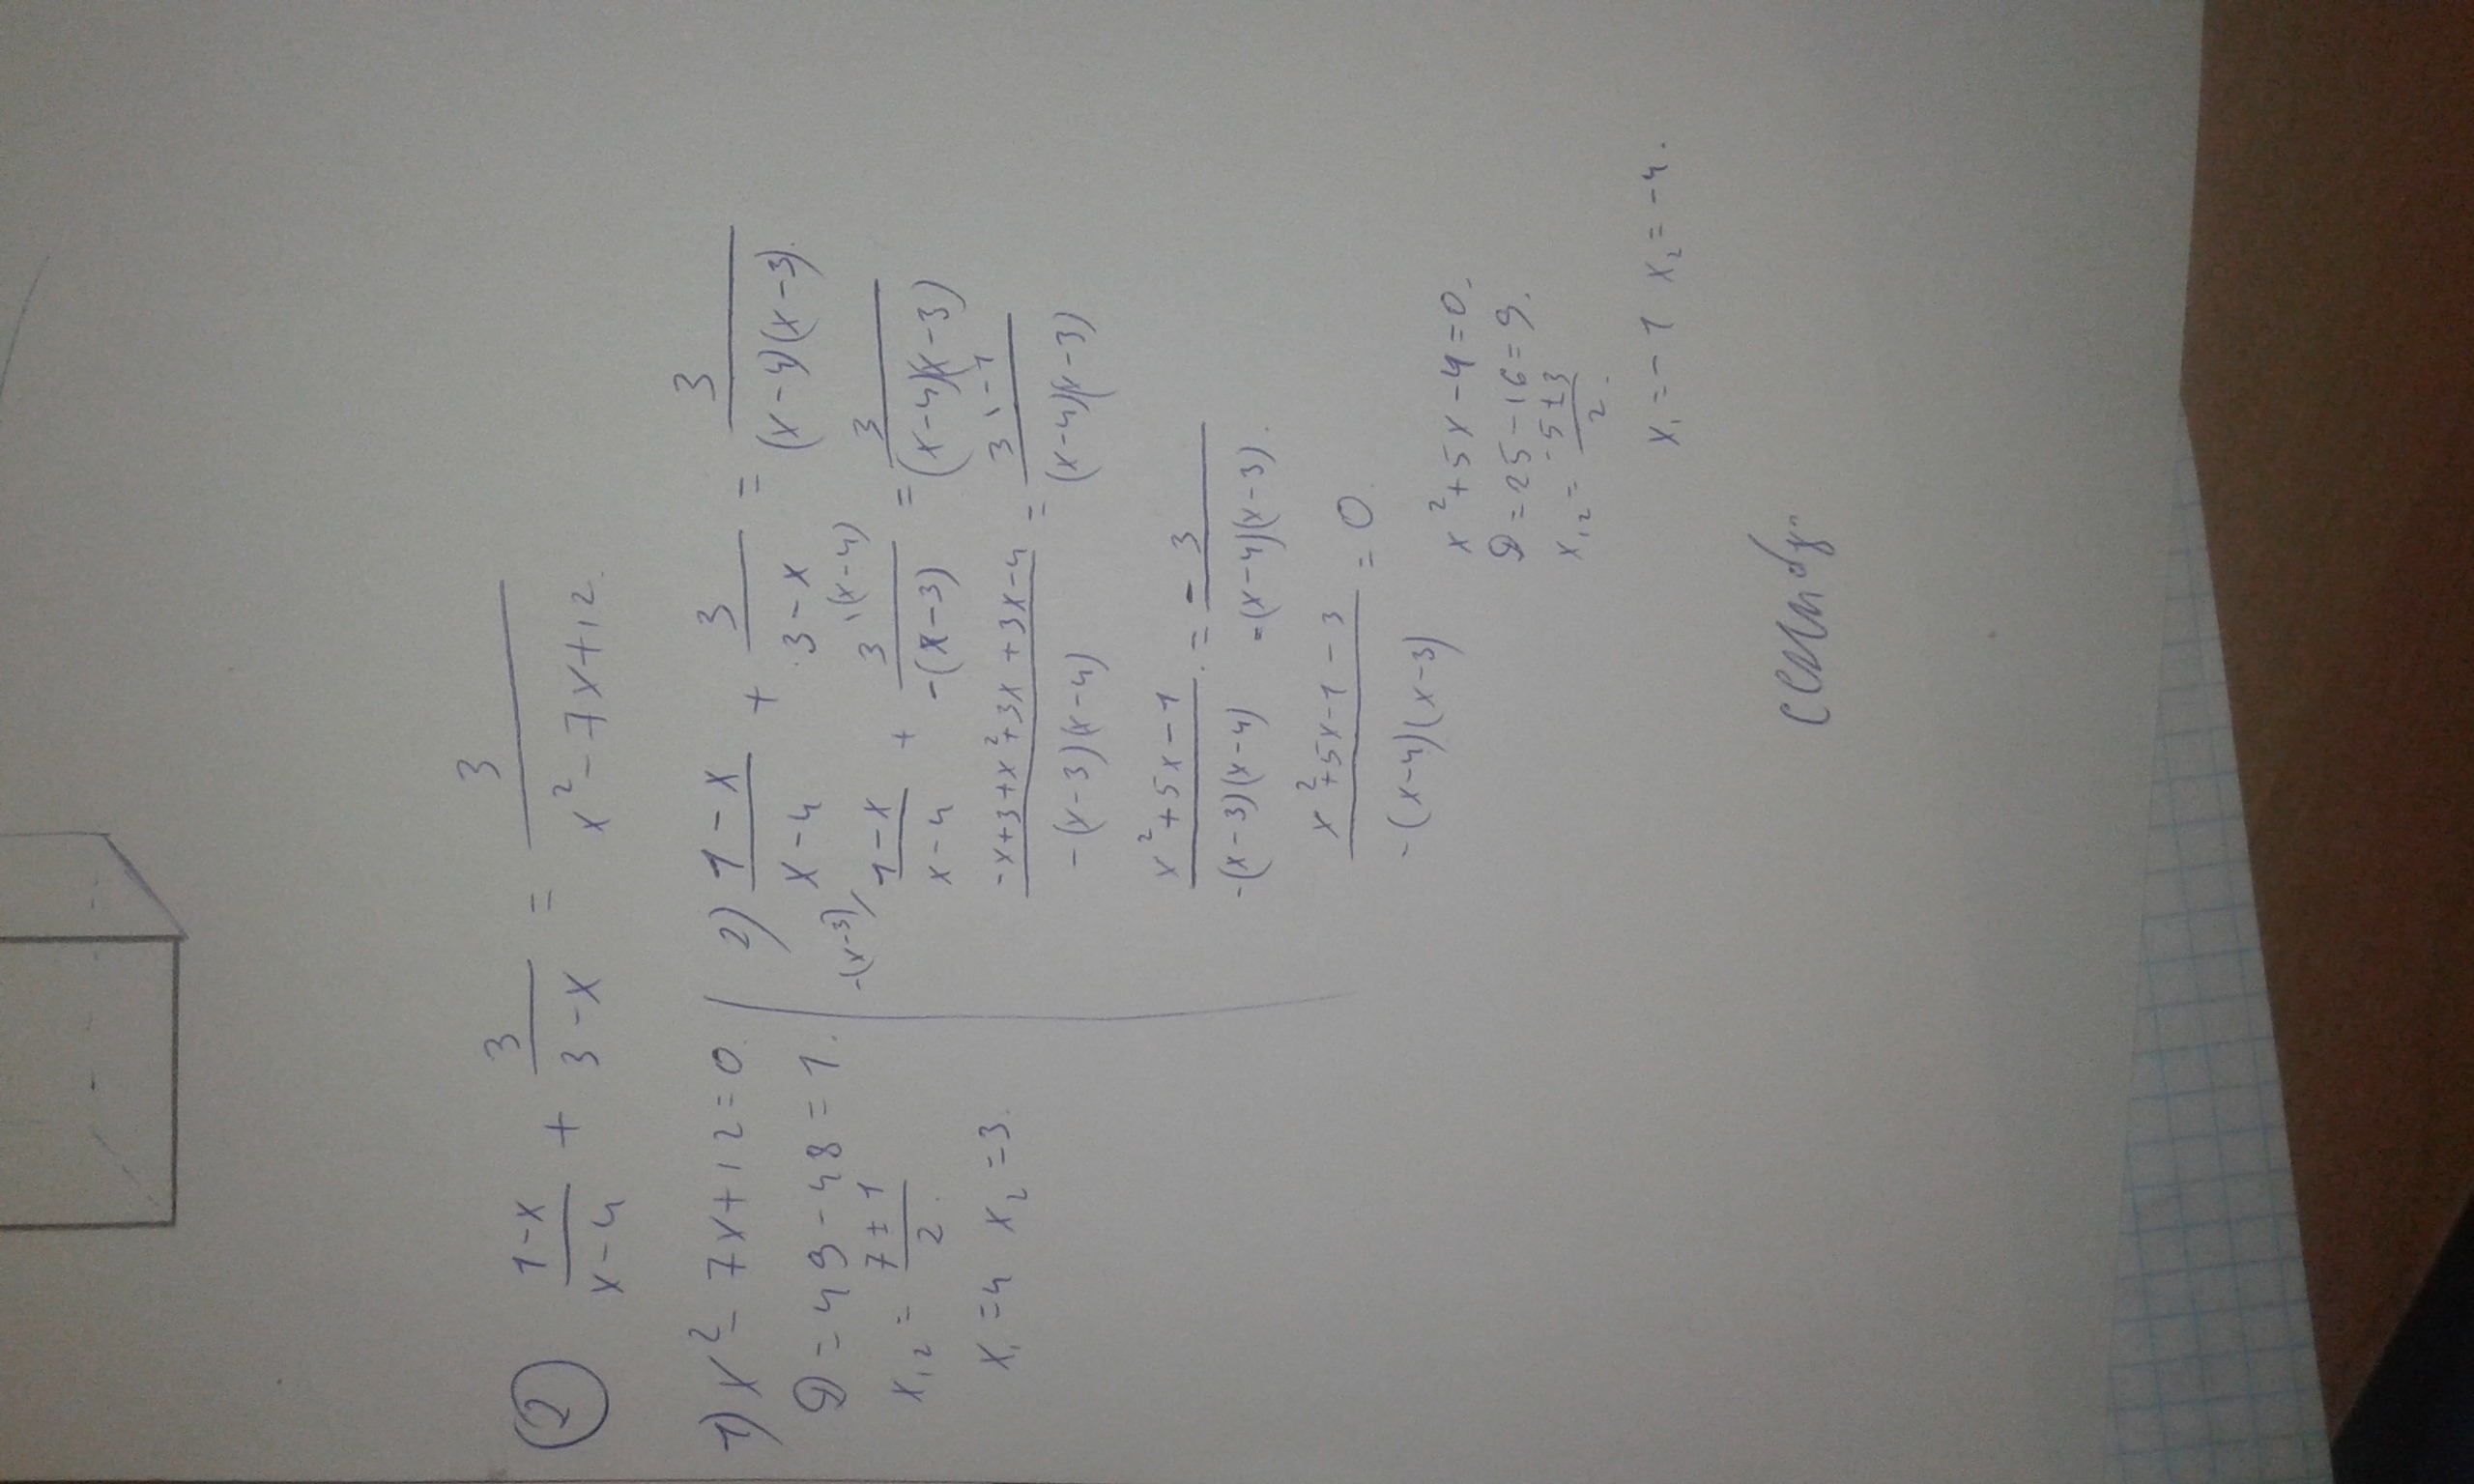 ② (1-x)/(x-4) + 3/(3-x) = 3/(x²-7x+12.)
1) x²-7x+12=0.
D=49-48=1.
x₁₂= (7±1)/2.
x₁=4 x₂=3.
2) (1-x)/(x-4) + 3/(3-x) = 3/((x-4)(x-3).)
-(x-3)/ (1-x)/(x-4) + 3 \(x-4)/(-(x-3)) = 3/((x-4)(x-3))
(-x+3+x²+3x+3x-4)/(-(x-3)(x-4)) = 3 \-1/((x-4)(x-3))
(x²+5x-1)/(-(x-3)(x-4)) = -3/(-(x-4)(x-3).)
(x²+5x-1-3)/(-(x-4)(x-3)) = 0.
x²+5x-4=0.
D=25-16=9.
x₁₂= (-5±3)/2.
x₁=-1 x₂=-4.